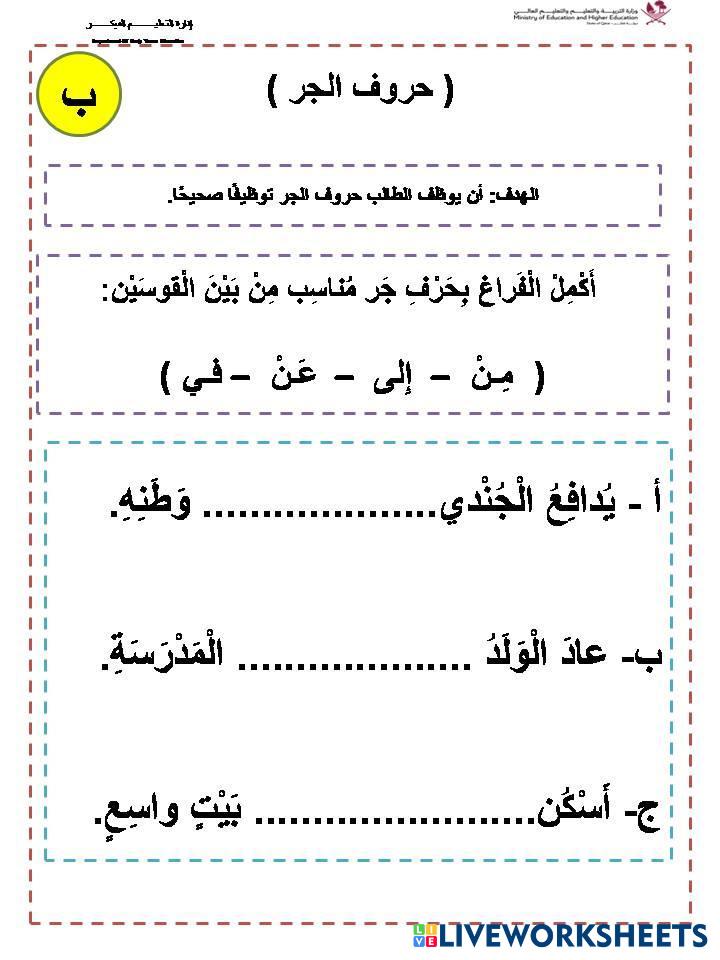 إدارة التعليم المبكر
وزارة التربية والتعليم والتعليم العالي
Ministry of Education and Higher Education
ب
( حروف الجر )
الهدف: أن يوظف الطالب حروف الجر توظيفًا صحيحًا.
أَكْمِلْ الْفَراغْ بِحَرْفِ جَر مُناسِب مِنْ بَيْنَ الْقوسَيْن:
( مِـنْ – إِلى – عَـنْ – فـي )
أ - يُدافِعُ الْجُنْدي.................... وَطَنِهِ.
ب- عادَ الْوَلَدُ .................... الْمَدْرَسَةِ.
ج- أَسْكُن........................ بَيْتٍ واسِعٍ.
LIVEWORKSHEETS